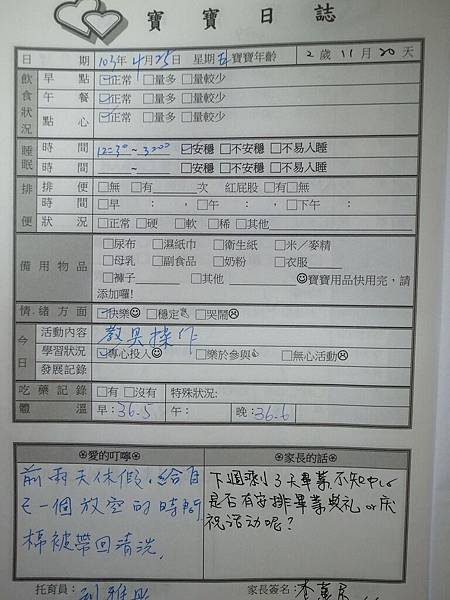 寶寶日誌
日期 103年4月25日 星期五 寶寶年齡 2歲11月20天
飲食狀況 早點 ☑正常 □量多 □量較少
午餐 ☑正常 □量多 □量較少
點心 ☑正常 □量多 □量較少
睡眠 時間 12:30~3:00 ☑安穩 □不安穩 □不易入睡
時間 ~ □安穩 □不安穩 □不易入睡
排便 排便 □無 □有____次 紅屁股 □有□無
時間 □早 : ,□午 : ,□下午 :
狀況 □正常 □硬 □軟 □稀 □其他
備用物品 □尿布 □濕紙巾 □衛生紙 □米／麥精
□母乳 □副食品 □奶粉 □衣服
□褲子 □其他 ☺寶寶用品快用完,請
添加囉!
情緒方面 ☑快樂☺ □穩定 □哭鬧☹
今日 活動內容 教具操作
學習狀況 ☑專心投入☺ □樂於參與 □無心活動☹
發展記錄
吃藥記錄 □有 □沒有 特殊狀況:
體溫 早:36.5 午: 晚:36.6
愛的叮嚀 家長的話
前兩天休假,給自
己一個放空的時間
棉被帶回清洗.
下週剩3天畢業不知中心
是否有安排畢業典礼or庆
祝活动呢?
托育員: 家長簽名: